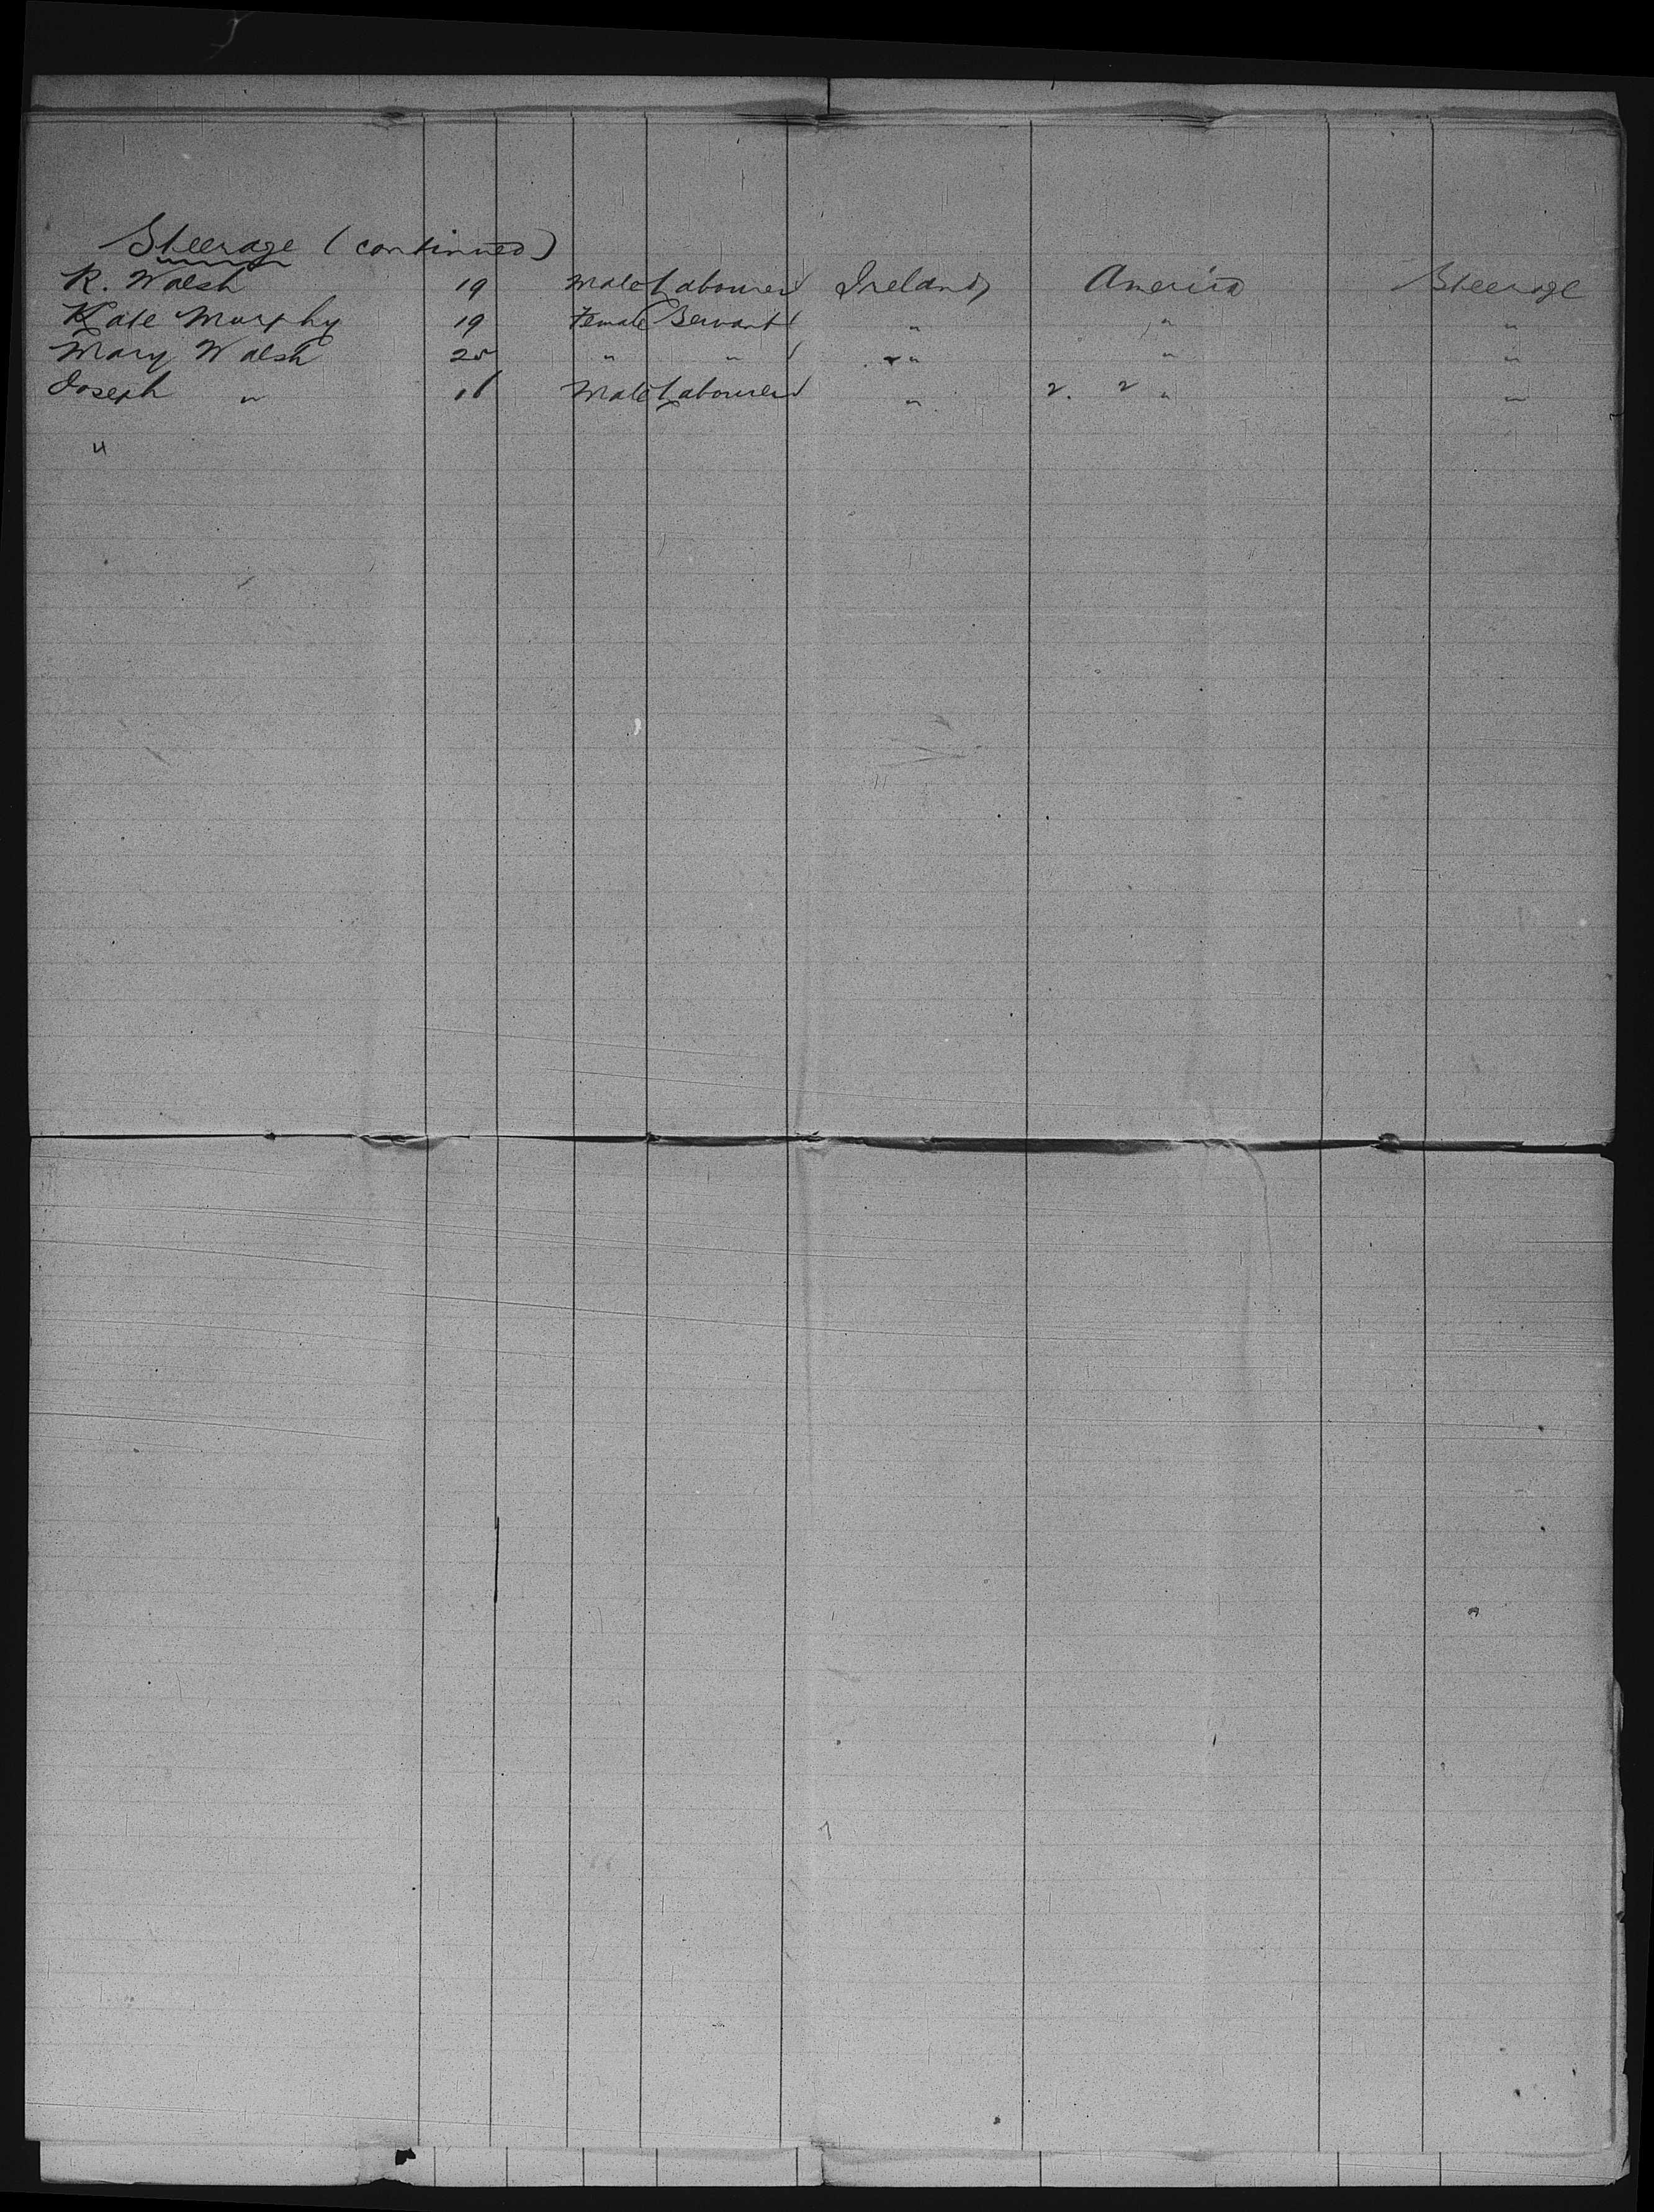 Steerage (continued)
R. Walsh 19 Male Labourer Ireland America Steerage
Kate Murphy 19 Female Servant " " "
Mary Walsh 20 " " " " "
Joseph " 16 Male Labourer " 2. 2 " "
4